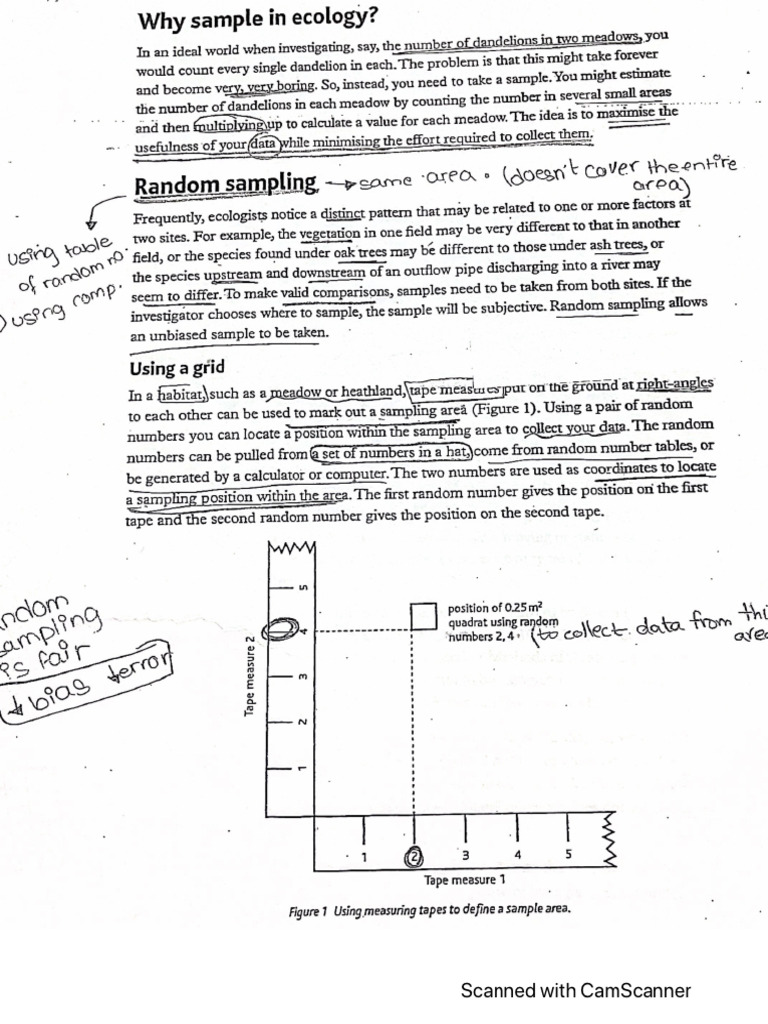 Why sample in ecology?
In an ideal world when investigating, say, the number of dandelions in two meadows, you
would count every single dandelion in each. The problem is that this might take forever
and become very, very boring. So, instead, you need to take a sample. You might estimate
the number of dandelions in each meadow by counting the number in several small areas
and then multiplying up to calculate a value for each meadow. The idea is to maximise the
usefulness of your data while minimising the effort required to collect them.
Random sampling → same area. (doesn't cover the entire
area)
Frequently, ecologists notice a distinct pattern that may be related to one or more factors at
two sites. For example, the vegetation in one field may be very different to that in another
field, or the species found under oak trees may be different to those under ash trees, or
the species upstream and downstream of an outflow pipe discharging into a river may
seem to differ. To make valid comparisons, samples need to be taken from both sites. If the
investigator chooses where to sample, the sample will be subjective. Random sampling allows
an unbiased sample to be taken.
using table
of random no.
) using comp.
Using a grid
In a habitat, such as a meadow or heathland, tape measures put on the ground at right-angles
to each other can be used to mark out a sampling area (Figure 1). Using a pair of random
numbers you can locate a position within the sampling area to collect your data. The random
numbers can be pulled from a set of numbers in a hat, come from random number tables, or
be generated by a calculator or computer. The two numbers are used as coordinates to locate
a sampling position within the area. The first random number gives the position on the first
tape and the second random number gives the position on the second tape.
ndom
ampling
is fair
↓ bias ↓error
5
4
3
2
1
Tape measure 2
position of 0.25 m²
quadrat using random
numbers 2, 4. (to collect data from thi
area
1 2 3 4 5
Tape measure 1
Figure 1 Using measuring tapes to define a sample area.
Scanned with CamScanner